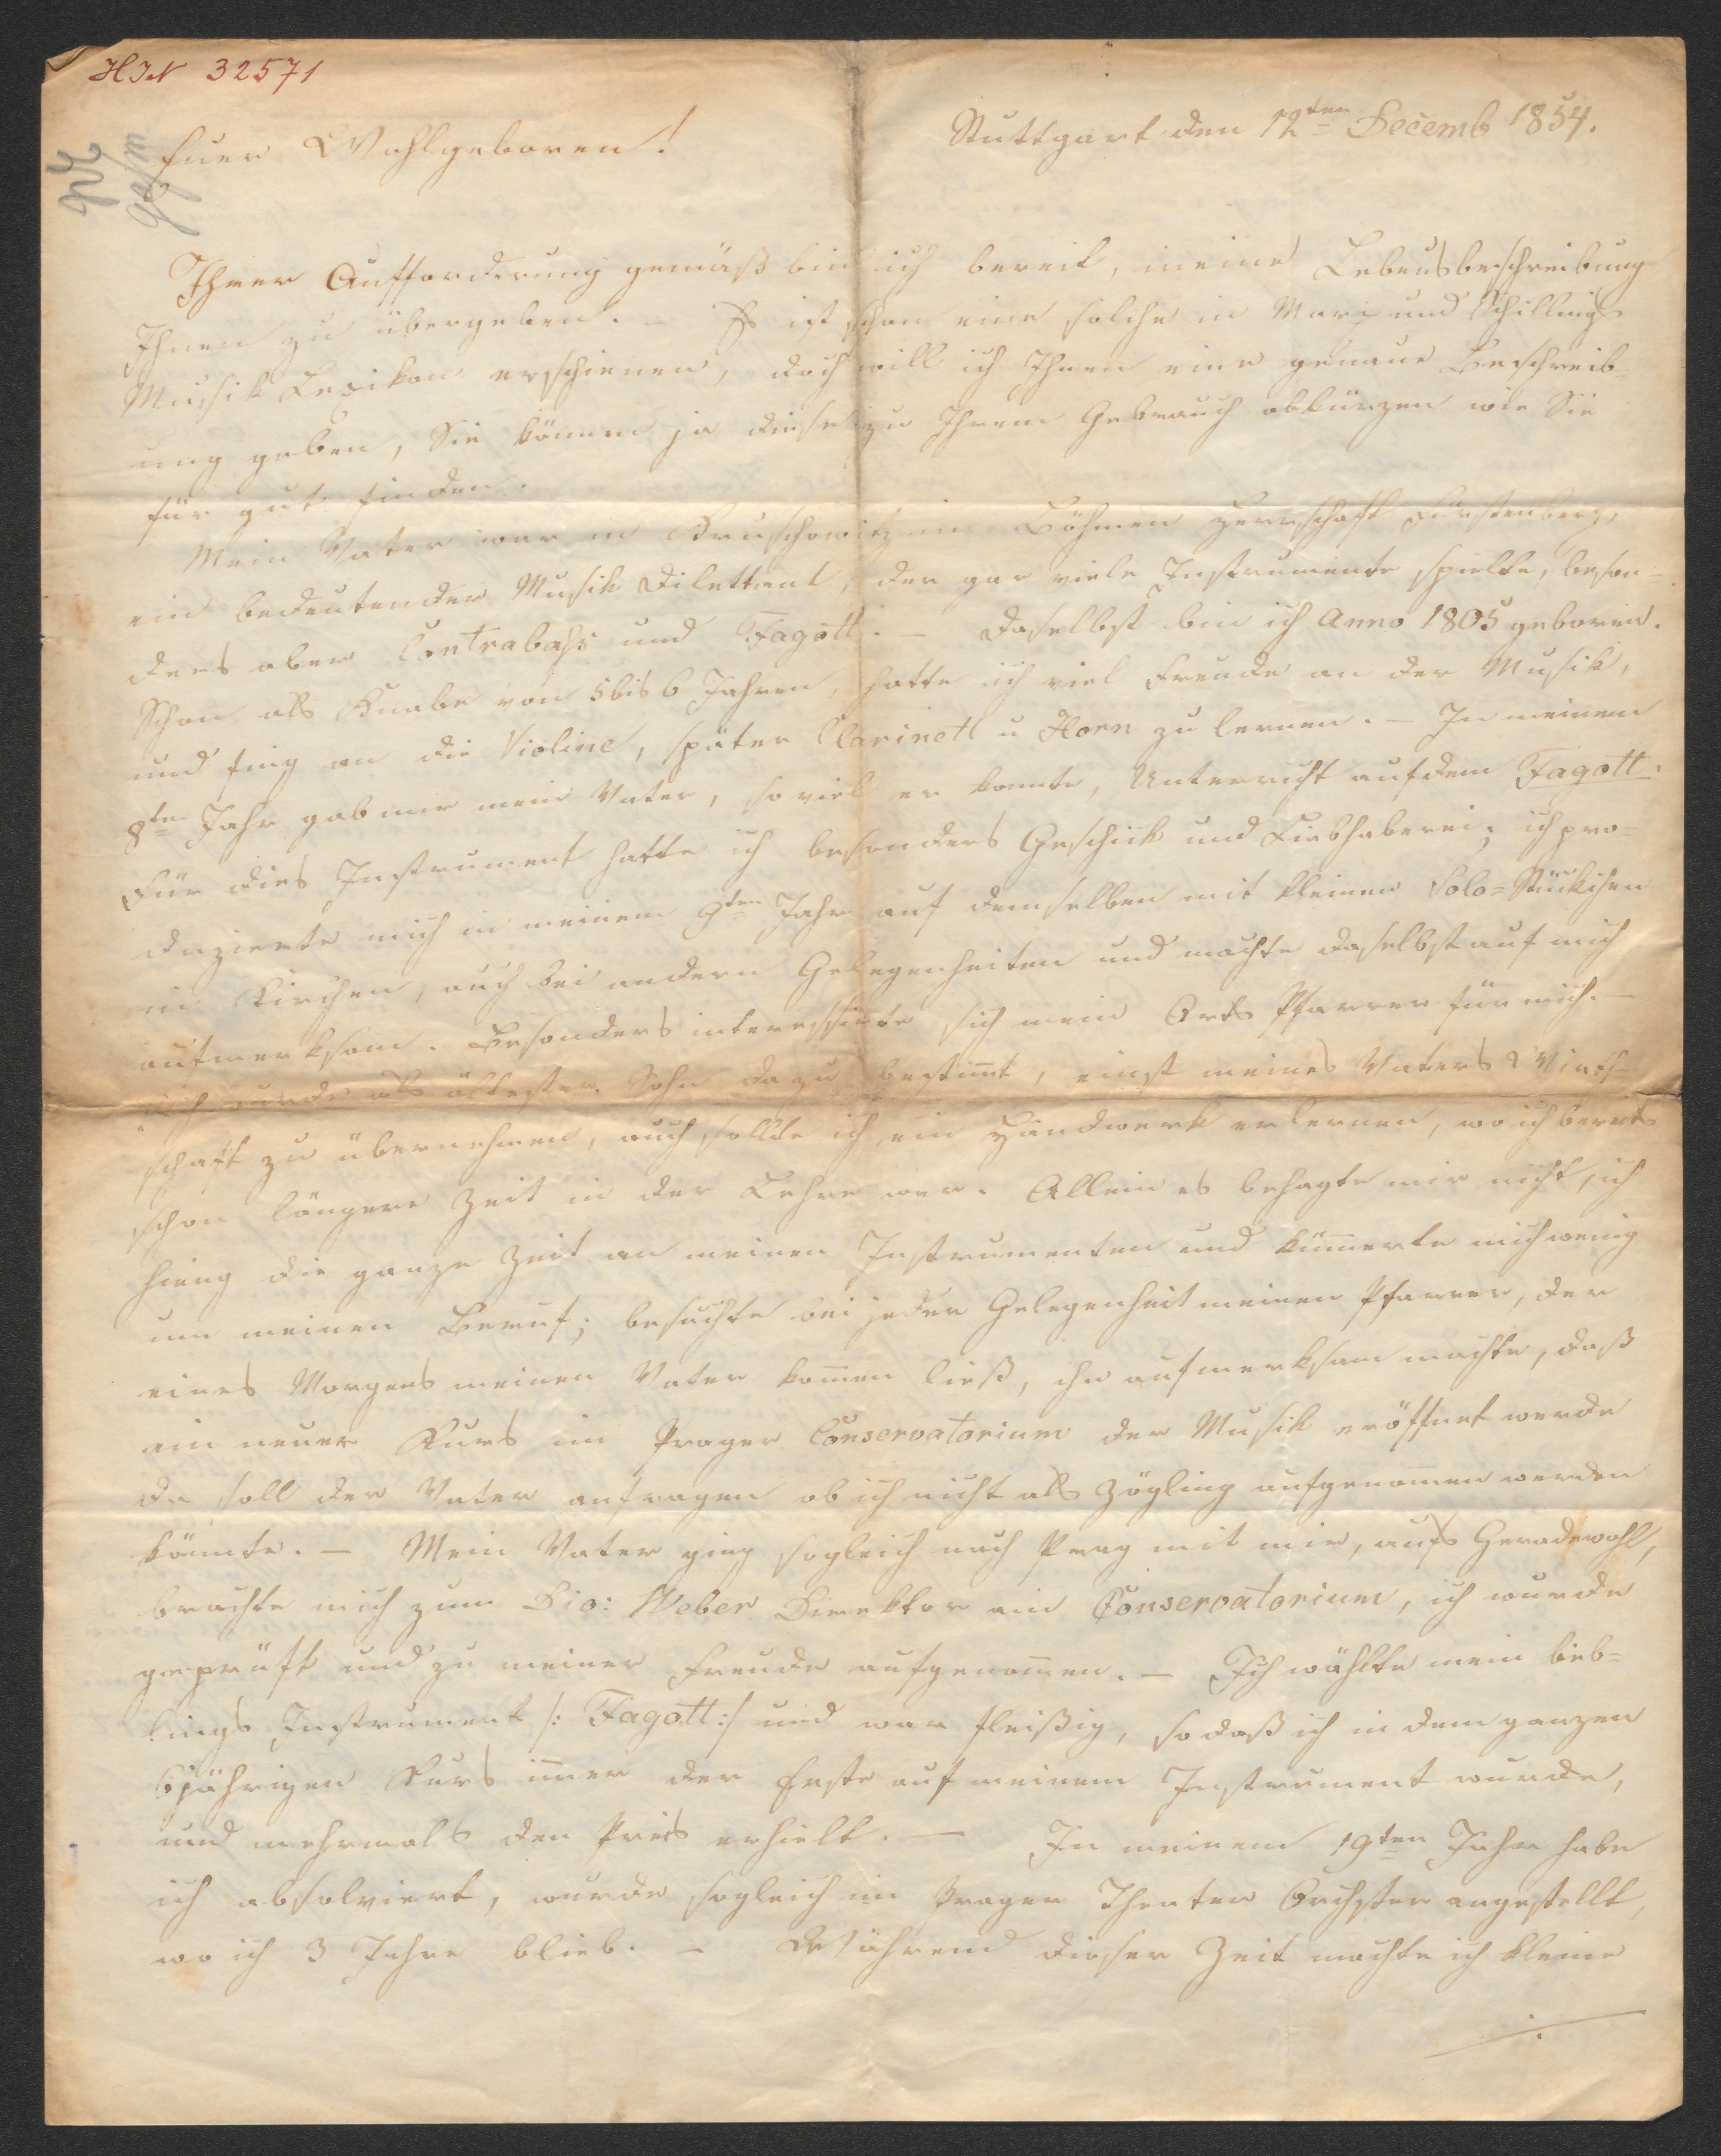 HIN 32571
Stuttgart den 12ten Decemb 1854.
Euer Wohlgeboren!
Ihrer Aufforderung gemäß bin ich bereit, meine Lebensbeschreibung
Ihnen zu übergeben. – Es ist schon eine solche in und Schillings
Musik Lexikon erschienen, doch will ich Ihnen eine genaue Beschreib-
ung geben, Sie können ja diese zu Ihrem Gebrauch abkürzen wie Sie
für gut finden.
Mein Vater war in Kruschowitz in Böhmen Herrschaft Fürstenberg,
ein bedeutender Musik Dilettant, der gar viele Instrumente spielte, beson-
ders aber Contrabaß und Fagott. – Daselbst bin ich Anno 1805 geboren.
Schon als Knabe von 5 bis 6 Jahren, hatte ich viel Freude an der Musik,
und fing an die Violine, später Clarinett u Horn zu lernen. – In meinem
8ten Jahr gab mir mein Vater, so viel er konnte, Unterricht auf dem Fagott.
Für dies Instrument hatte ich besonders Geschick und Liebhaberei; ich pro-
duzierte mich in meinem 9ten Jahr auf demselben mit kleinen Solo-Stückchen
in Kirchen, auch bei andern Gelegenheiten und machte daselbst auf mich
aufmerksam. Besonders interessierte sich mein Orts Pfarrer für mich. –
Ich wurde als ältester Sohn dazu bestim̅t, einst meines Vaters Wirth-
schaft zu übernehmen, auch sollte ich ein Handwerk erlernen, wo ich bereits
schon längere Zeit in der Lehre war. Allein es behagte mir nicht, ich
hieng die ganze Zeit an meinen Instrumenten und küm̅erte mich wenig
um meinen Beruf; besuchte bei jeder Gelegenheit meinen Pfarrer, der
eines Morgens meinen Vater kom̅en ließ, ihn aufmerksam machte, daß
ein neuer Kurs im Prager Conservatorium der Musik eröffnet werde
da soll der Vater anfragen ob ich nicht als Zögling aufgenom̅en werden
könnte. – Mein Vater ging sogleich nach Prag mit mir, aufs Geradewohl,
brachte mich zum Dio: Weber Direktor am Conservatorium, ich wurde
geprüft und zu meiner Freude aufgenom̅en. – Ich wählte mein lieb-
lings Instrument /: Fagott :/ und war fleißig, so daß ich in dem ganzen
6jährigen Kurs im̅er der Erste auf meinem Instrument wurde,
und mehrmals den Preis erhielt. – In meinem 19ten Jahr habe
ich absolviert, wurde sogleich im Prager Theater Orchster angestellt,
wo ich 3 Jahre blieb. – Während dieser Zeit machte ich kleine